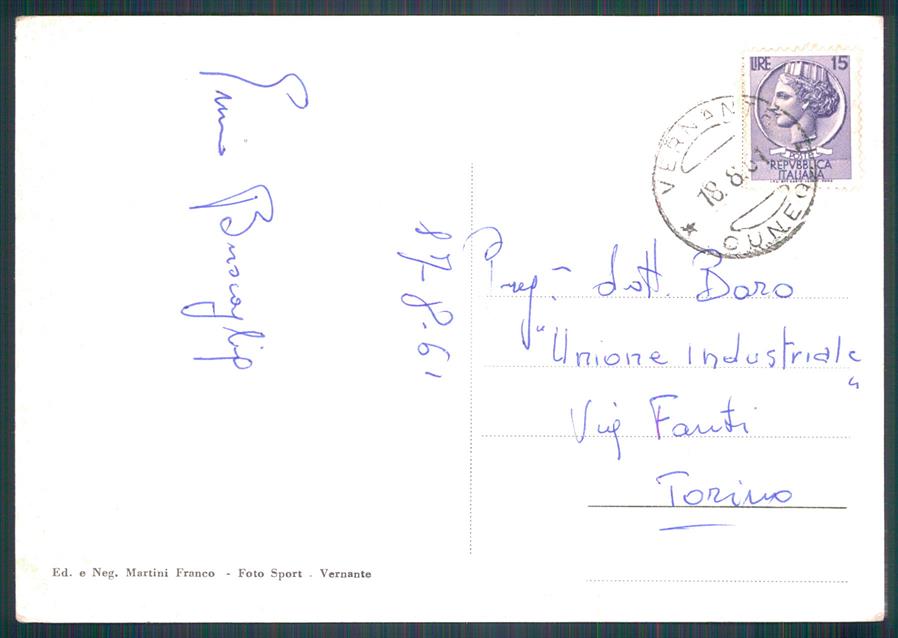 Buscaglia
17-8-61
LIRE 15
POSTE
REPVBBLICA
ITALIANA
VERNANTE
18.8.61
CUNEO
Preg. dott. Boro
"Unione Industriale"
Via Fanti
Torino
Ed. e Neg. Martini Franco - Foto Sport - Vernante